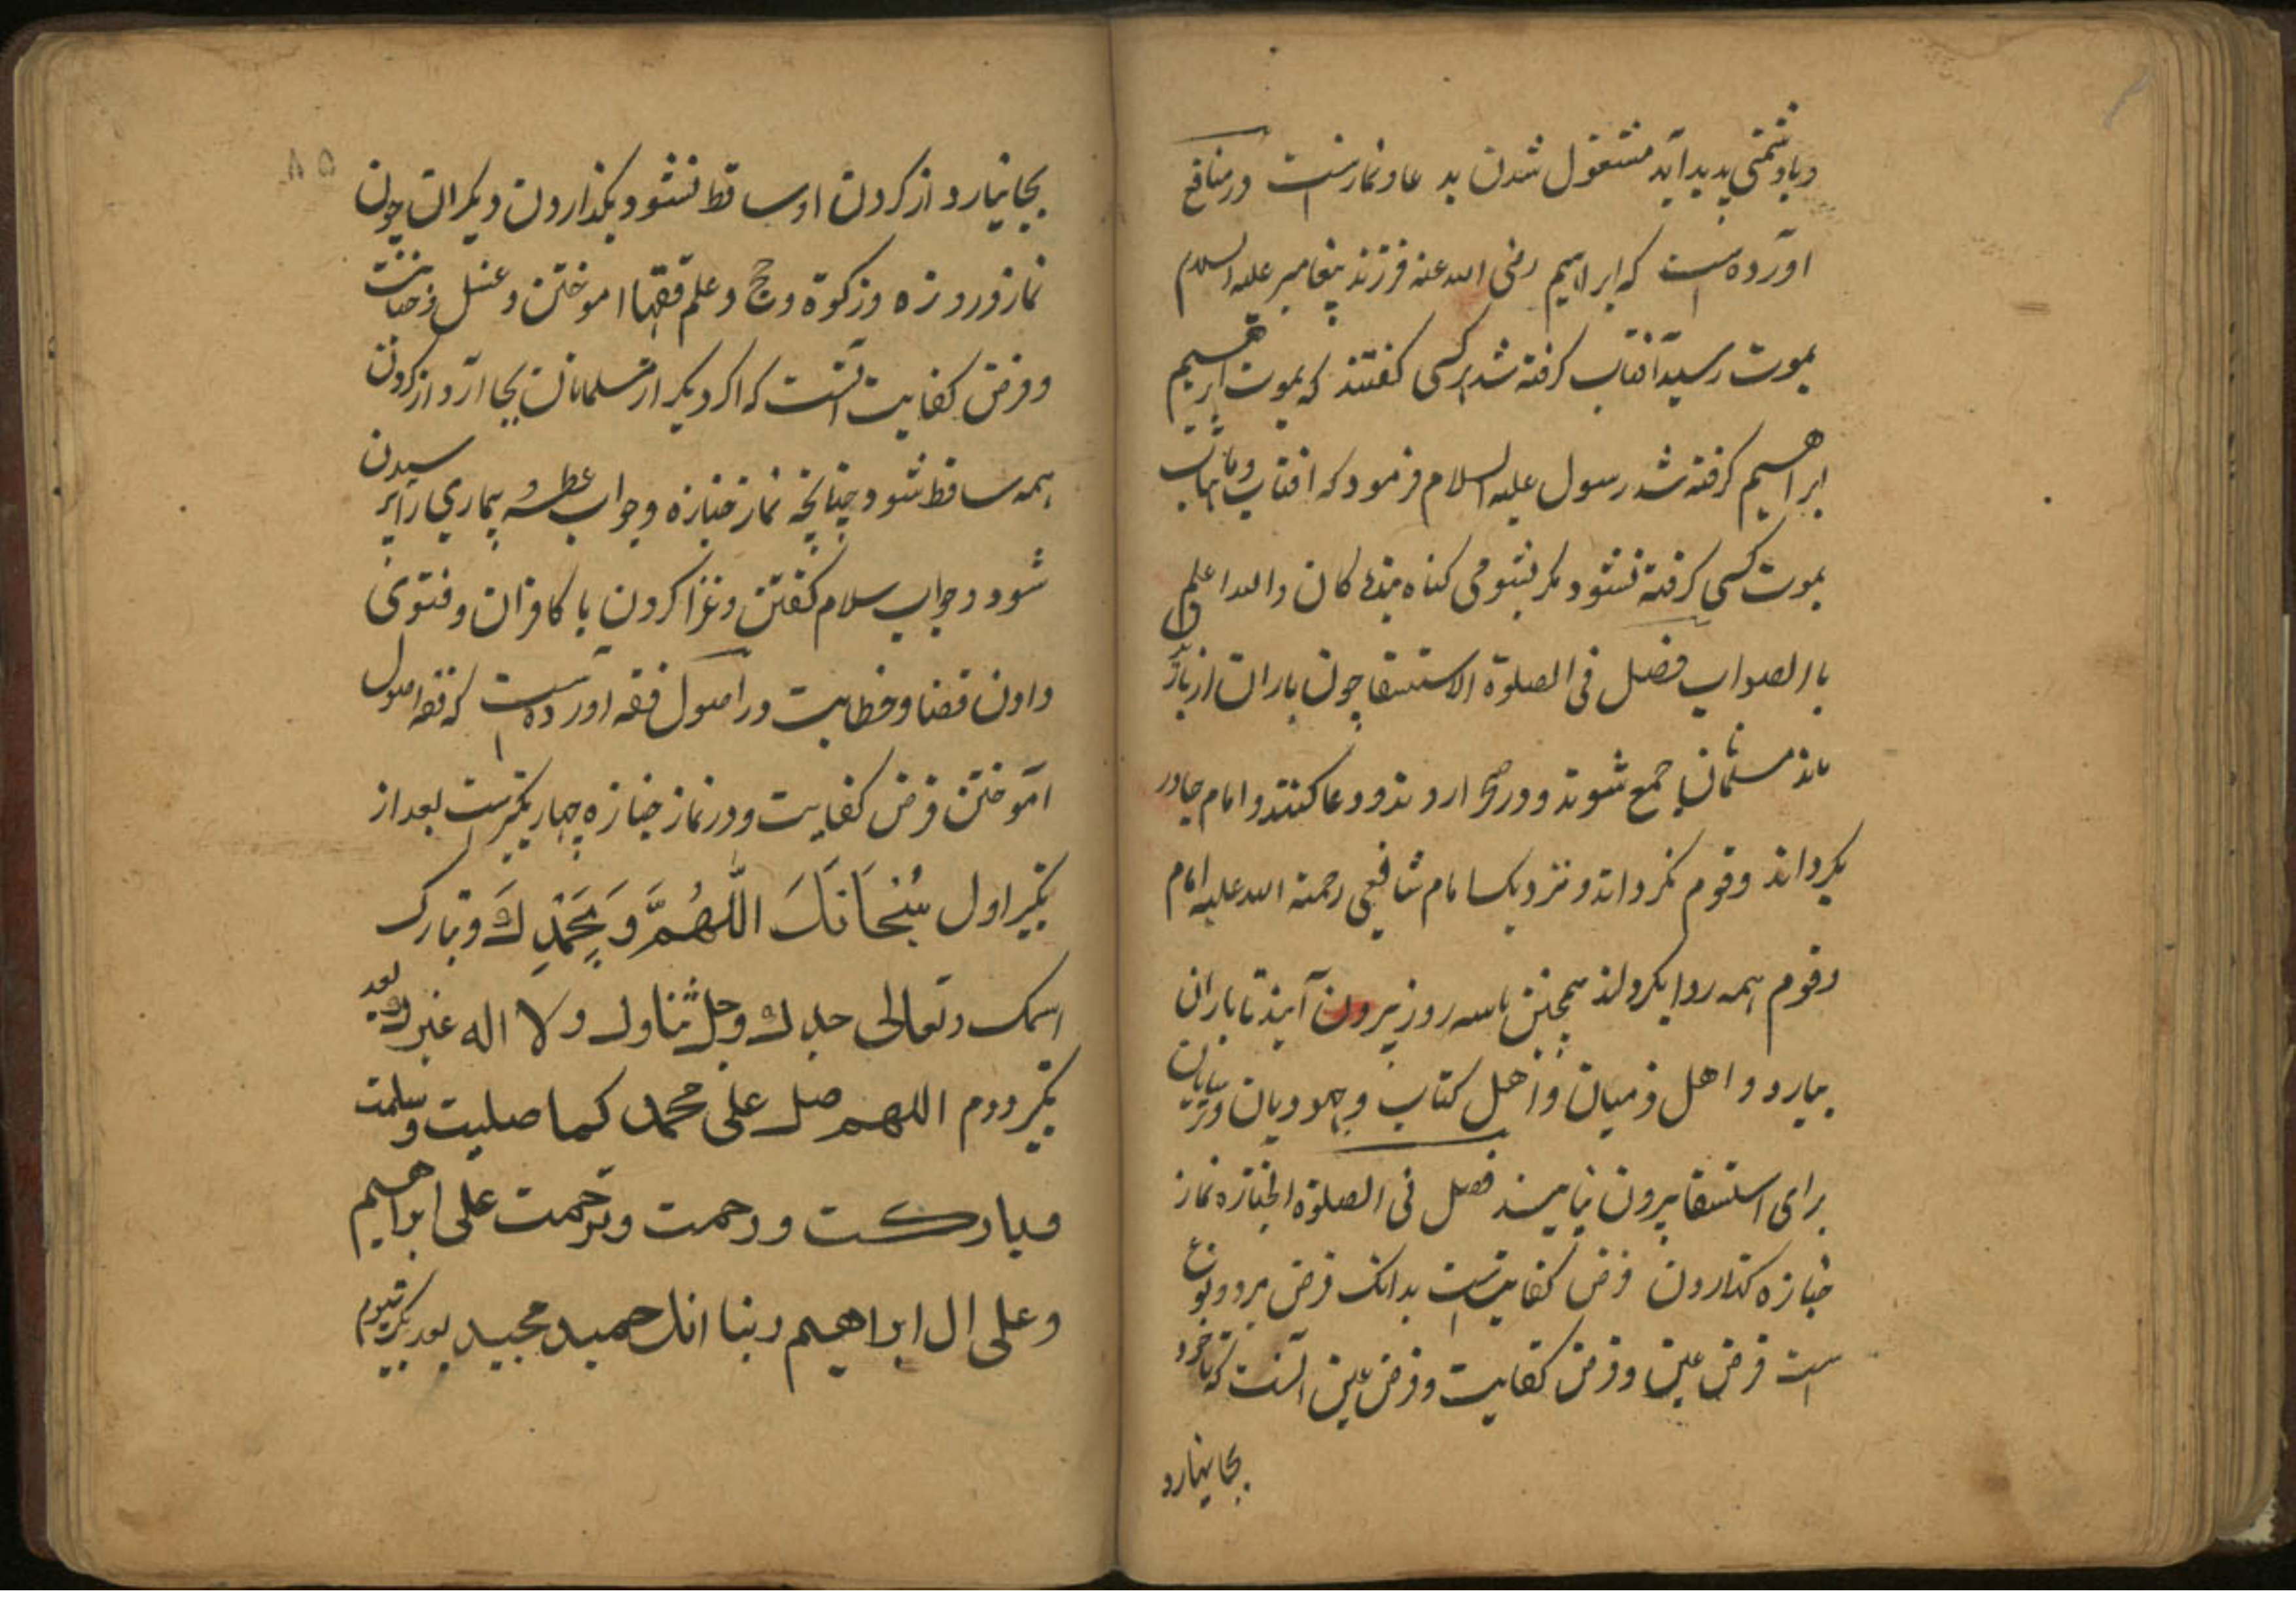 وبا دشمنی پدید آید مشغول شدن بدعا و نماز است در منافع
آورده است که ابراهیم رضی الله عنه فرزند پیغامبر علیه السلام
بموت رسید آفتاب گرفته شد هر کسی گفتند که بموت ابرهیم
ابراهیم گرفته شد رسول علیه السلام فرمود که افتاب و ماهتاب
بموت کسی گرفته نشود مگر بشومی کناه بندکان والله اعلم
باالصواب فصل فی الصلوة الاستسقا چون باران از باز
ماند مسلمانان جمع شوند و در صحرا روند و دعا کنند و امام چادر
بگرداند و قوم نگرداند و نزدیک امام شافعی رحمة الله علیه امام
و قوم همه ردا بگردانند همچنین تا سه روز بیرون آیند تا باران
ببارد و اهل ذمیان و اهل کتاب و جهودیان و ترسایان
برای استسقا بیرون نیایند فصل فی الصلوة الجنازه نماز
جنازه گذاردن فرض کفایتست بدانک فرض بر دو نوع
است فرض عین و فرض کفایت و فرض عین آنست که تا خود
بجا نیارد
۵۸
بجا نیارد از کردن او ساقط نشود بگذاردن دیگران چون
نماز و روزه و زکوة و حج و علم فقهاا موختن و غسل و جنابت
و فرض کفایت آنست که اگر دیگر از مسلمانان بجا آرد از گردن
همه ساقط شود چنانچه نماز جنازه و جواب عطسه و بیماری را پرسیدن
شود و جواب سلام گفتن و غزا کردن با کافران و فتوی
دادن قضا و خطابت در اصول فقه آورده است که فقه اصول
آموختن فرض کفایت و در نماز جنازه چهار تکبیرست بعد از
تکبیر اول سُبْحَانَكَ اللّٰهُمَّ وَبِحَمْدِكَ وتبارک
اسمک وتعالی جدك وجل ثناوك ولا اله غیرك بعد
تکبیر دوم اللهم صل علی محمد كما صلیت وسلمت
وبارکت ورحمت وترحمت علی ابراهیم
وعلی ال ابراهیم ربنا انك حمید مجید بعد تکبیر سیوم